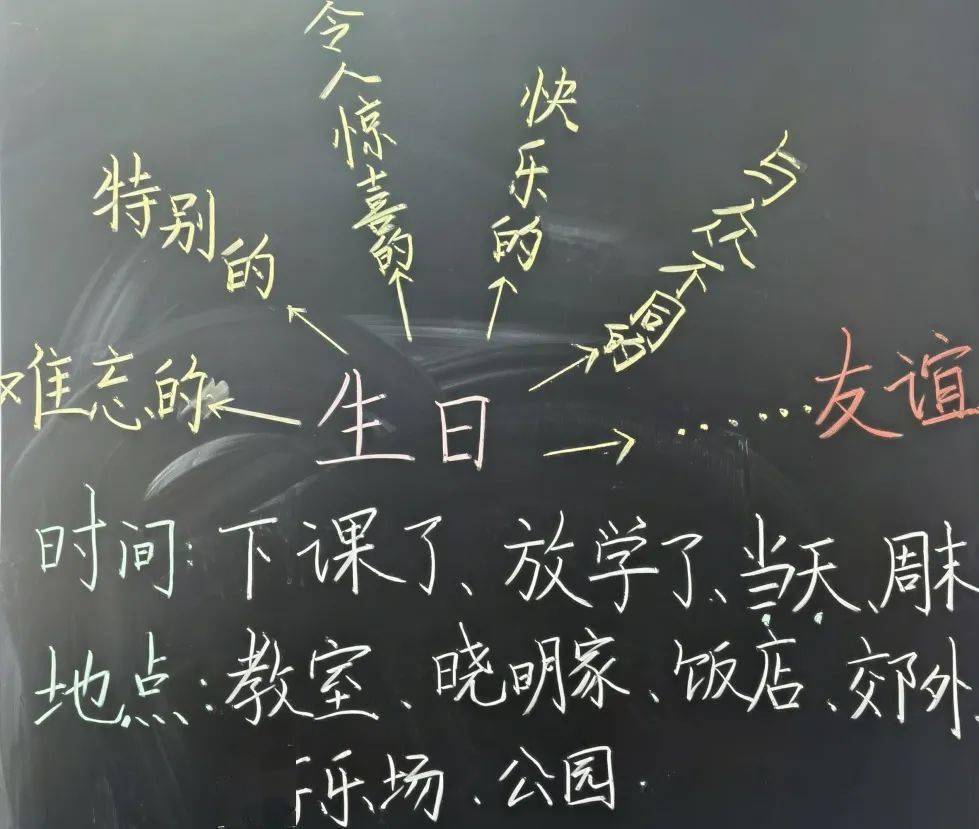 难忘的
特别的
令人惊喜的
快乐的
与众不同的
生日
……友谊
时间:下课了、放学了、当天、周末
地点:教室、晓明家、饭店、郊外
乐场、公园.